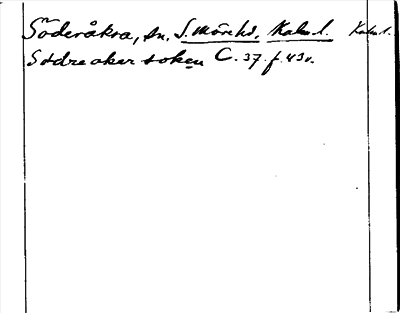 Söderåkra, sn. S. Möre hd. Kalm. l. Kalm. l.
Södreaker soken C. 37. f. 43v.